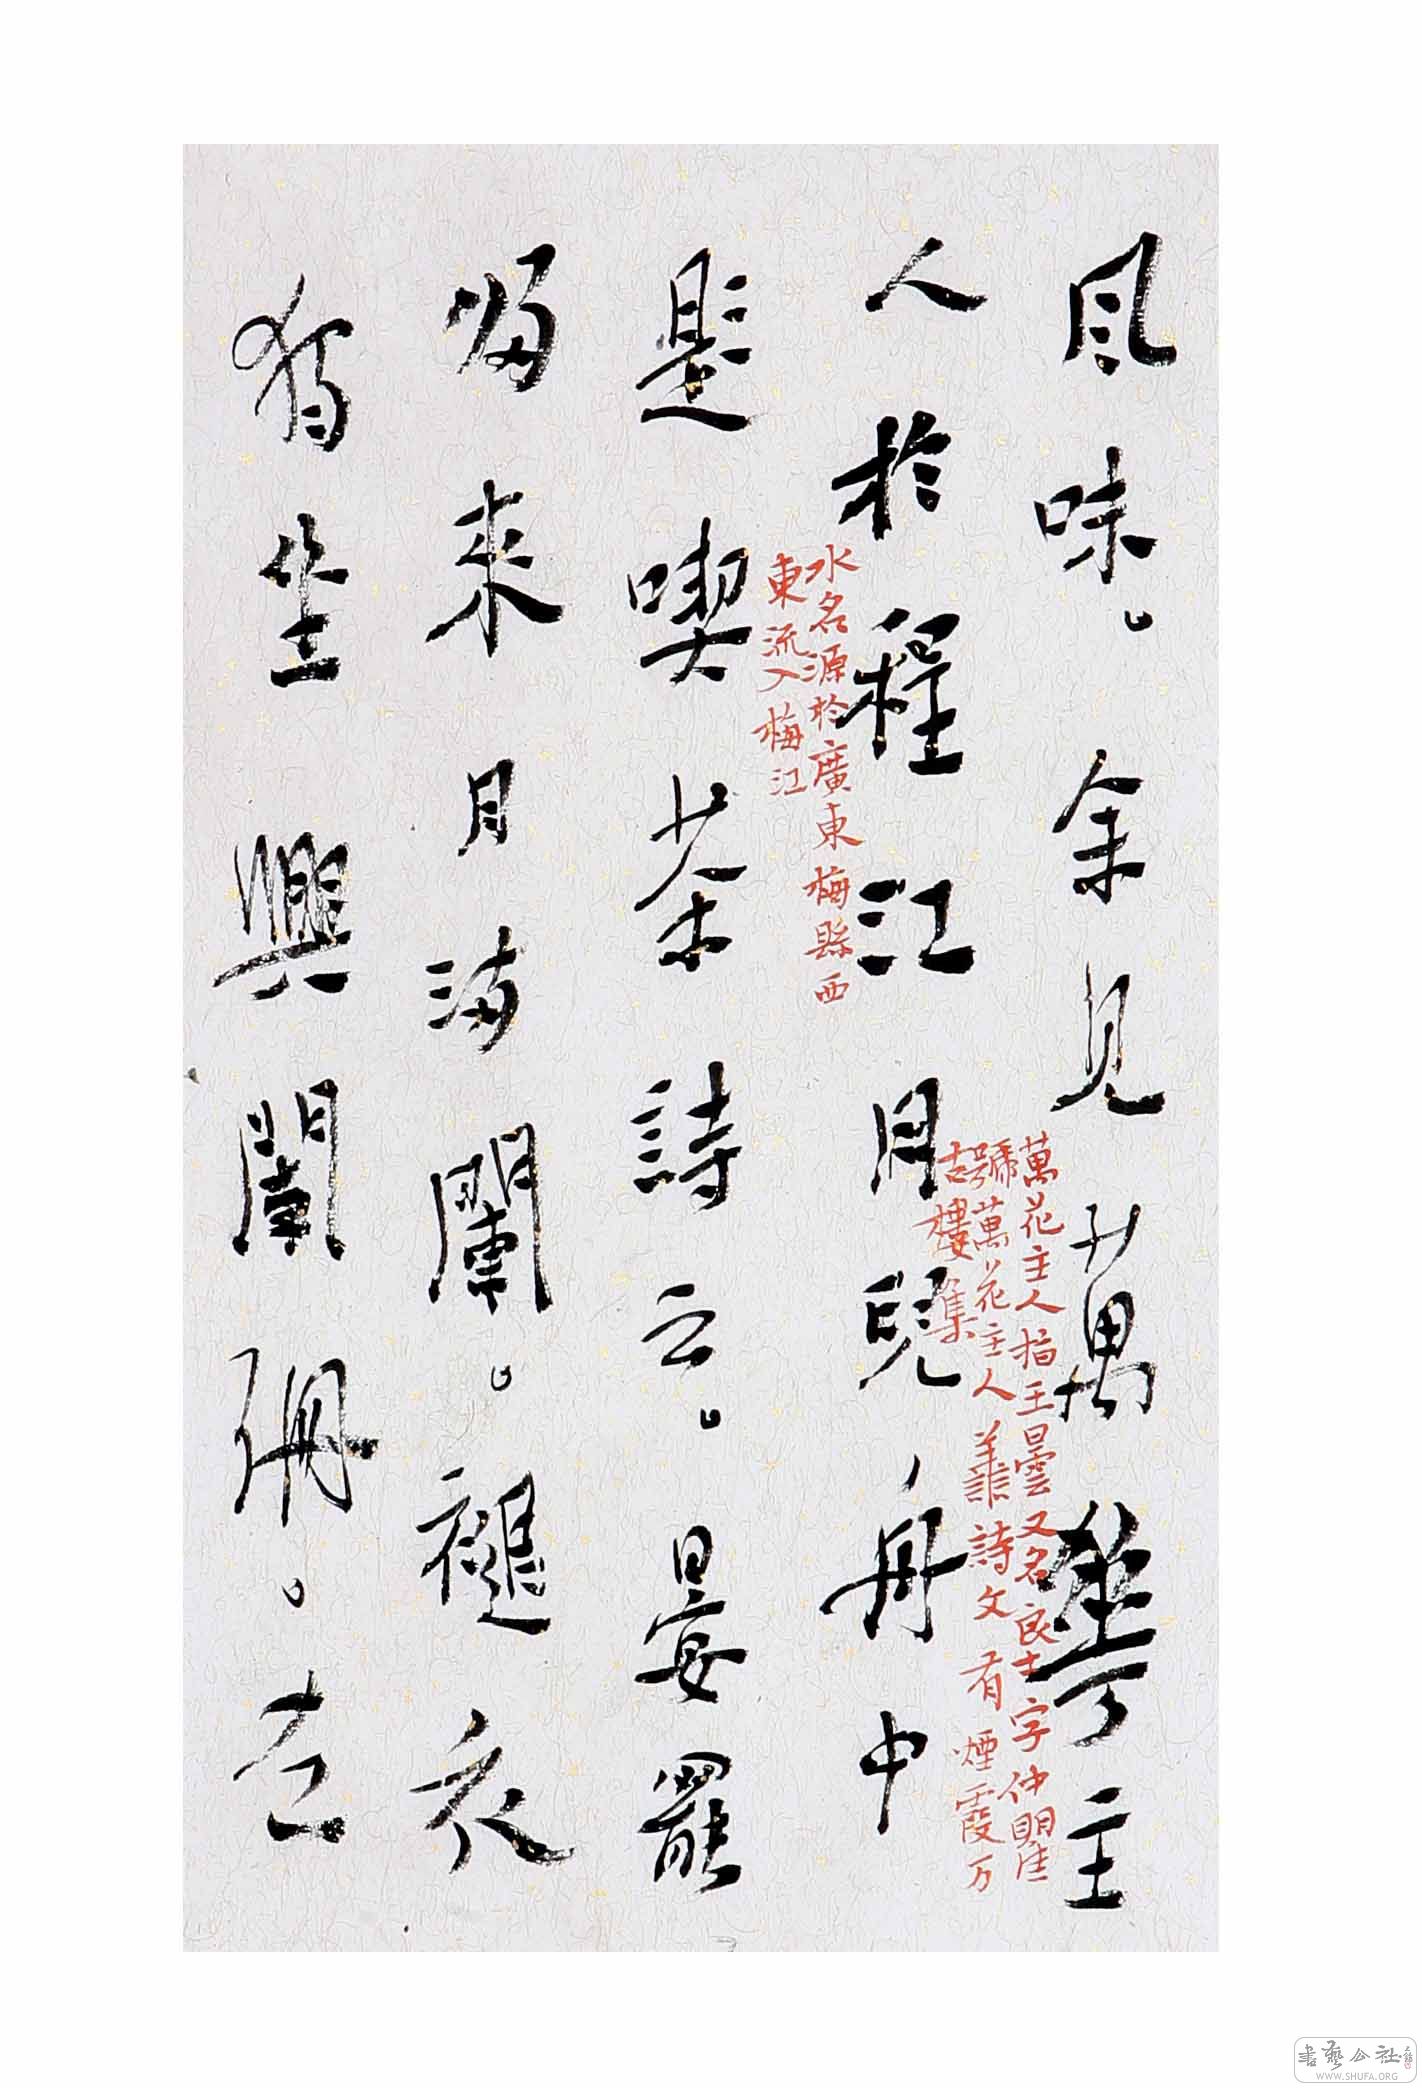 風味。余見萬華主
萬花主人指王曇又名良士字仲瞿
號萬花主人善詩文有煙霞万
古樓集
人於程江月兒舟中
水名源於廣東梅縣西
東流入梅江
題喫茶詩云。晏罷
歸來月滿闌。褪衣
獨坐興闌珊。左
書藝公社
WWW.SHUFA.ORG